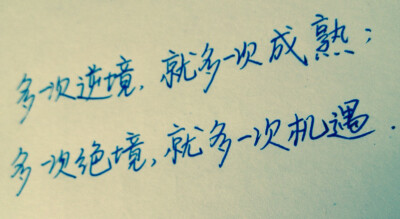 多一次逆境，就多一次成熟；
多一次绝境，就多一次机遇．